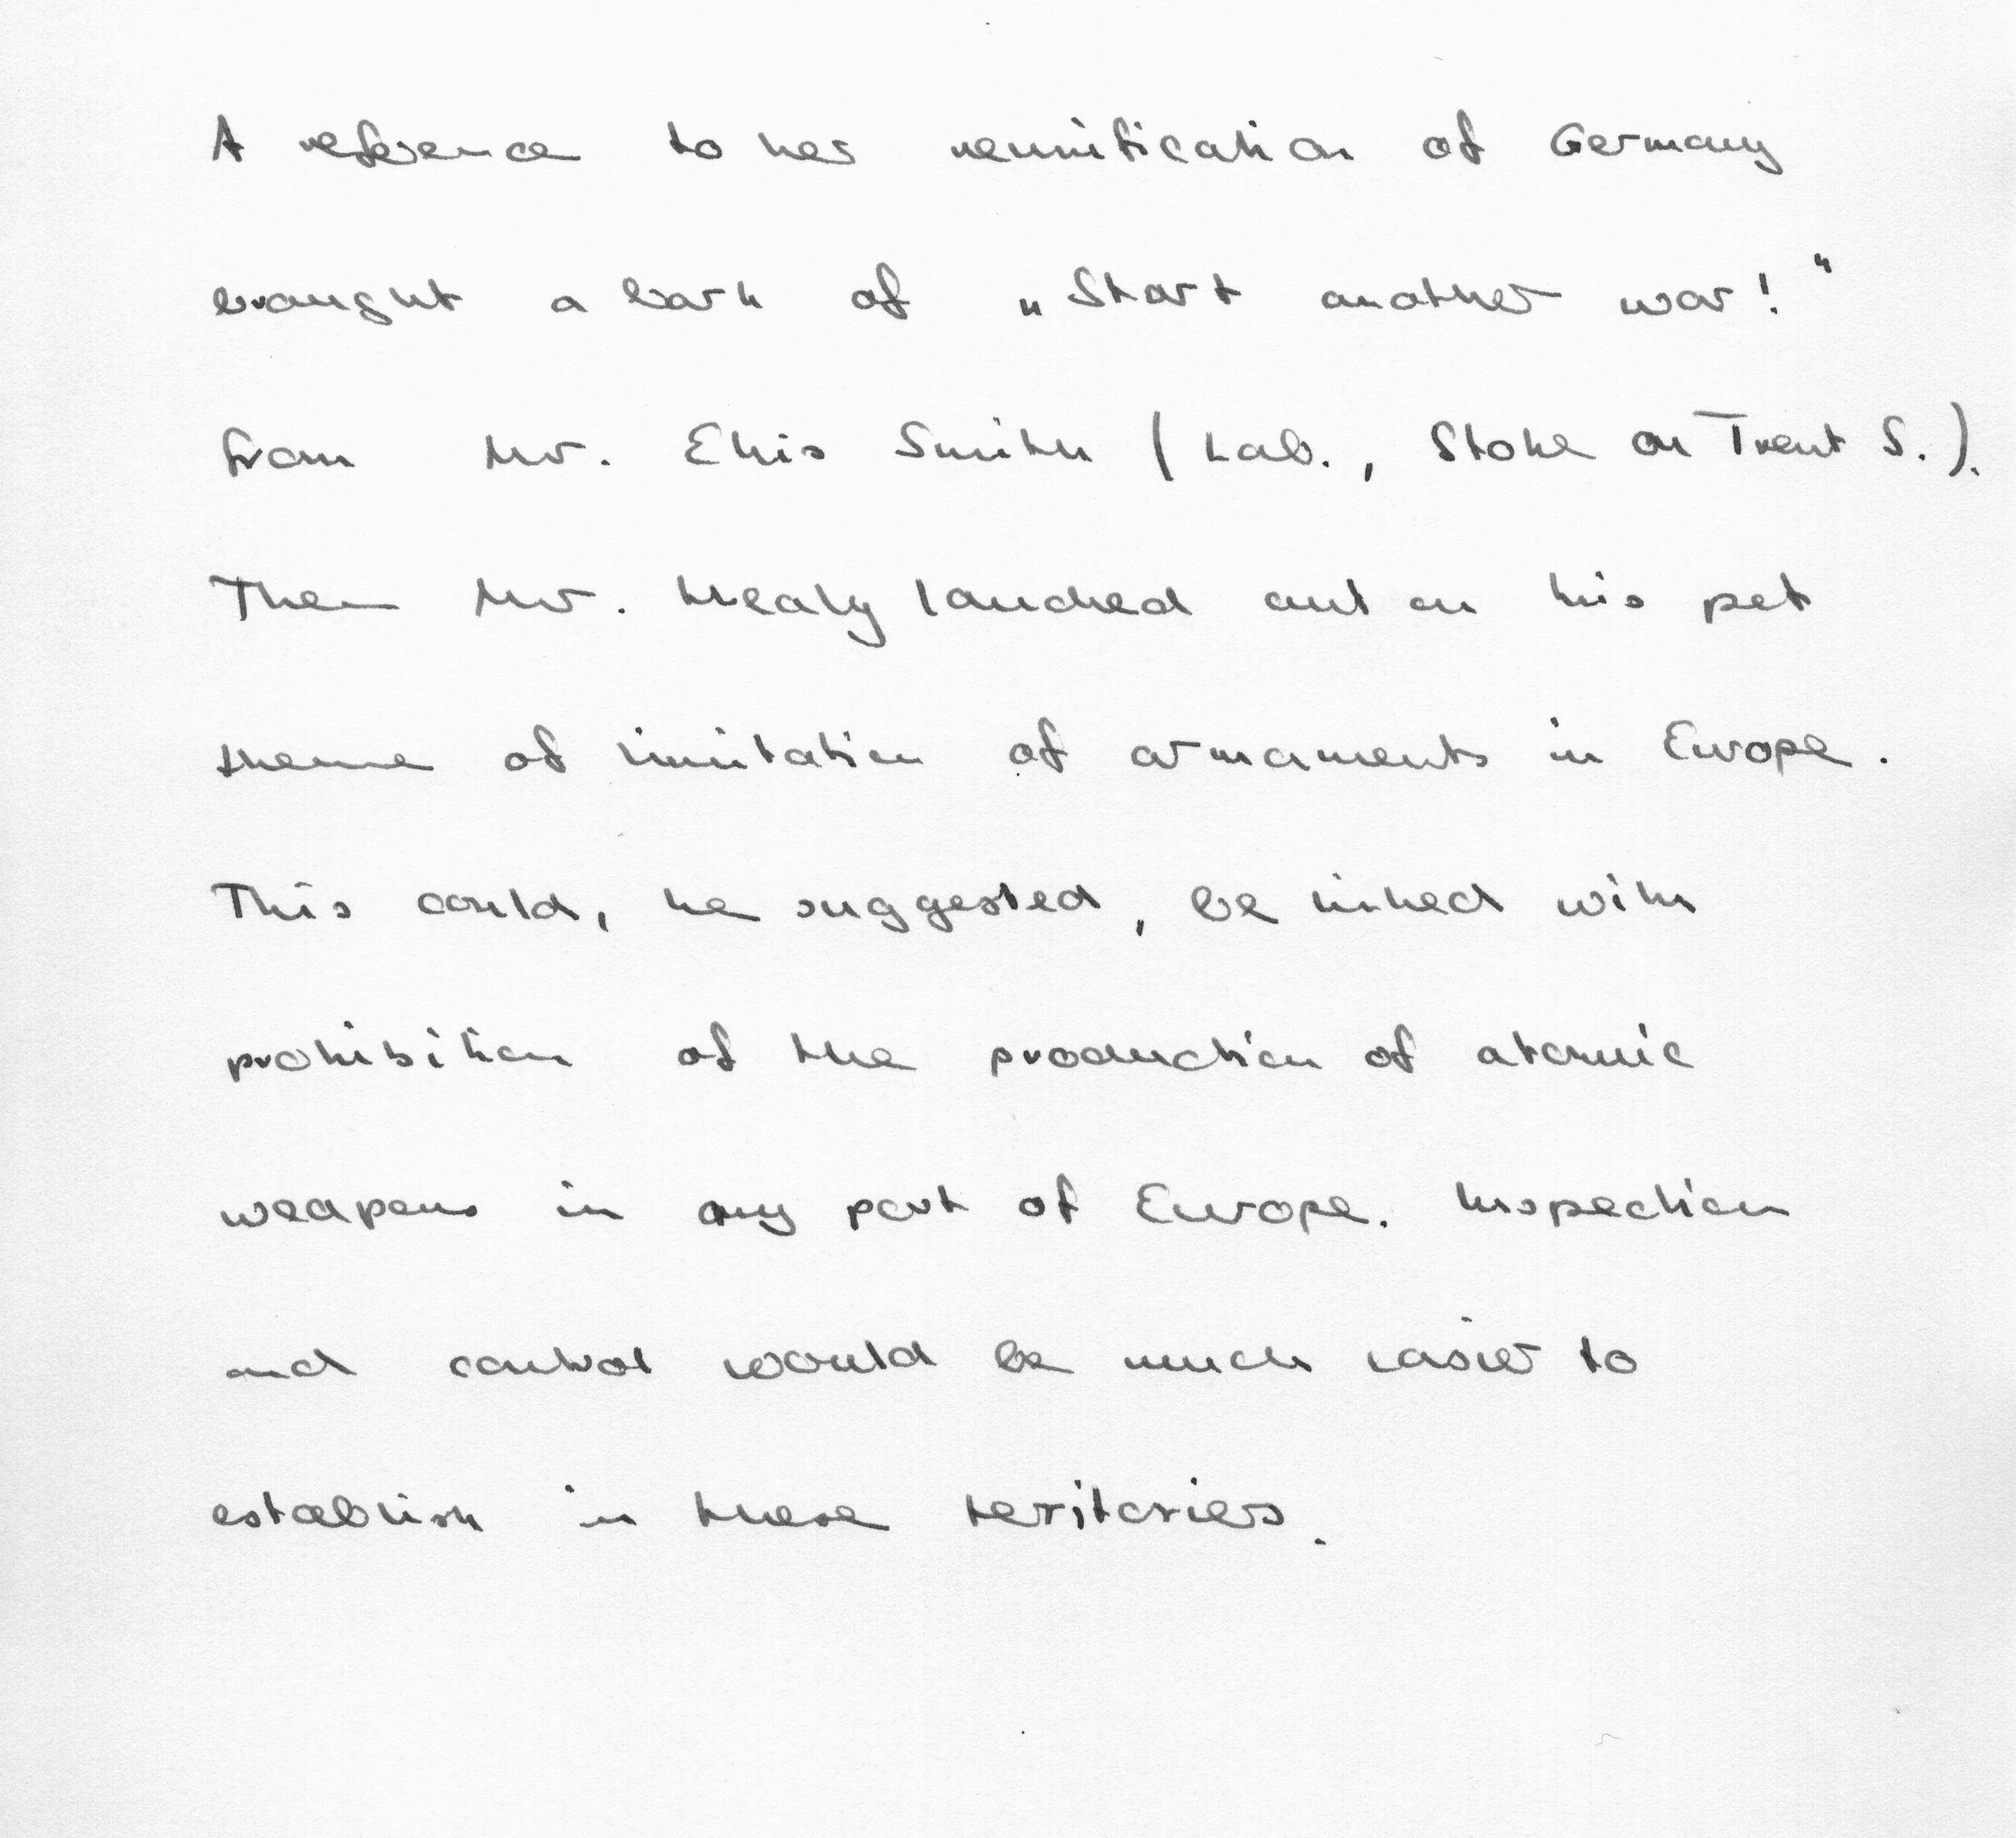 A reference to her reunification of Germany
brought a bark of „Start another war!“
from Mr. Ellis Smith (Lab., Stoke on Trent S.).
Then Mr. Healy lauched out on his pet
theme of limitation of armaments in Europe.
This could, he suggested, be linked with
prohibition of the production of atomic
weapons in any part of Europe. Inspection
and control would be much easier to
establish in these territories.